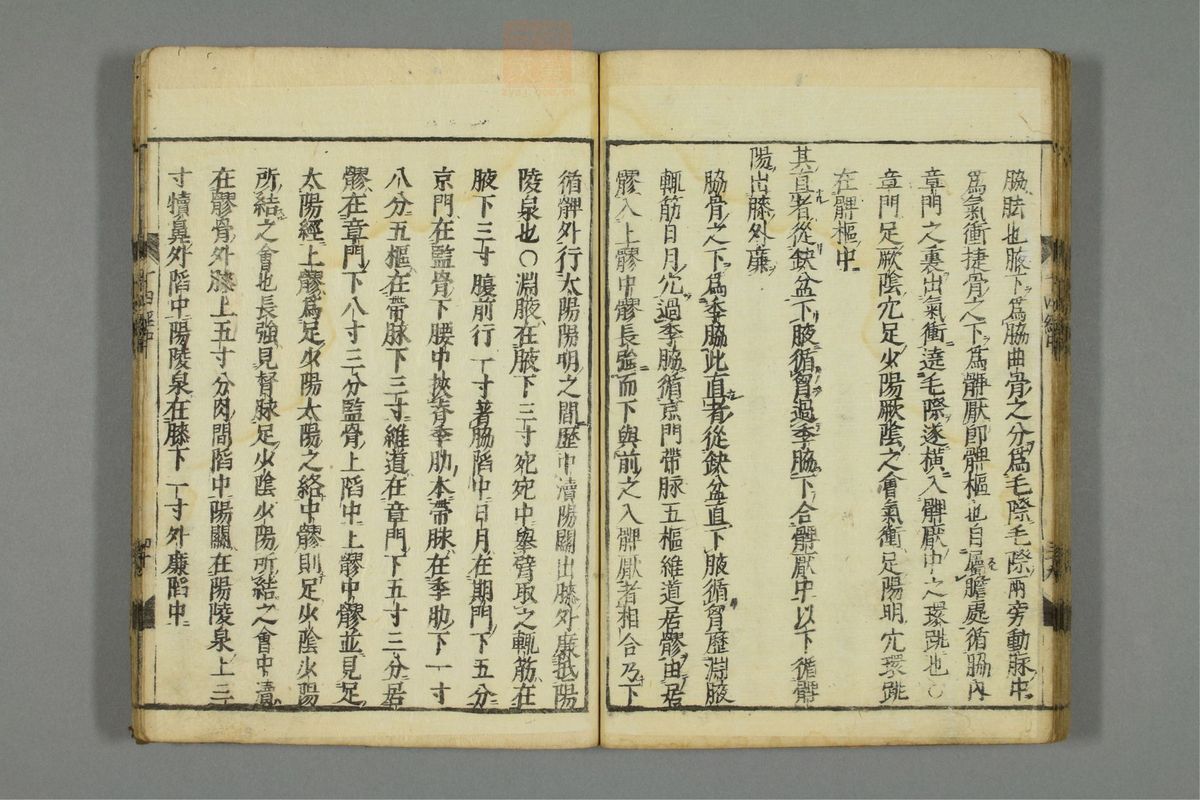 脇胠也脇下爲脇曲骨之分爲毛際毛際兩旁動脉中
爲氣衝捷骨之下爲髀厭即髀樞也自屬膽處循脇内
章門之裏出氣衝遶毛際遂横入髀厭中之環跳也○
章門足厥陰穴足少陽厥陰之會氣衝足陽明穴環跳
在髀樞中
其直者從鈌盆下腋循胷過季脇下合髀厭中以下循髀
陽出膝外廉
脇骨之下爲季脇此直者從鈌盆直下腋循胷歷淵腋
輒筋日月穴過季脇循京門帶脉五樞維道居髎由居
髎入上髎中髎長強而下與前之入髀厭者相合乃下
循髀外行太陽陽明之間歷中瀆陽關出膝外廉抵陽
陵泉也○淵腋在腋下三寸宛宛中擧臂取之輒筋在
腋下三寸腹前行一寸著脇陷中日月在期門下五分
京門在監骨下腰中挾脊季肋本帶脉在季肋下一寸
八分五樞在帶脉下三寸維道在章門下五寸三分居
髎在章門下八寸三分監骨上陷中上髎中髎並見足
太陽經上髎爲足少陽太陽之絡中髎則足少陰少陽
所結之會也長強見督脉足少陰少陽所結之會中瀆
在髀骨外膝上五寸分肉間陷中陽關在陽陵泉上三
寸犢鼻外陷中陽陵泉在膝下一寸外廉陷中
十四經中
四十